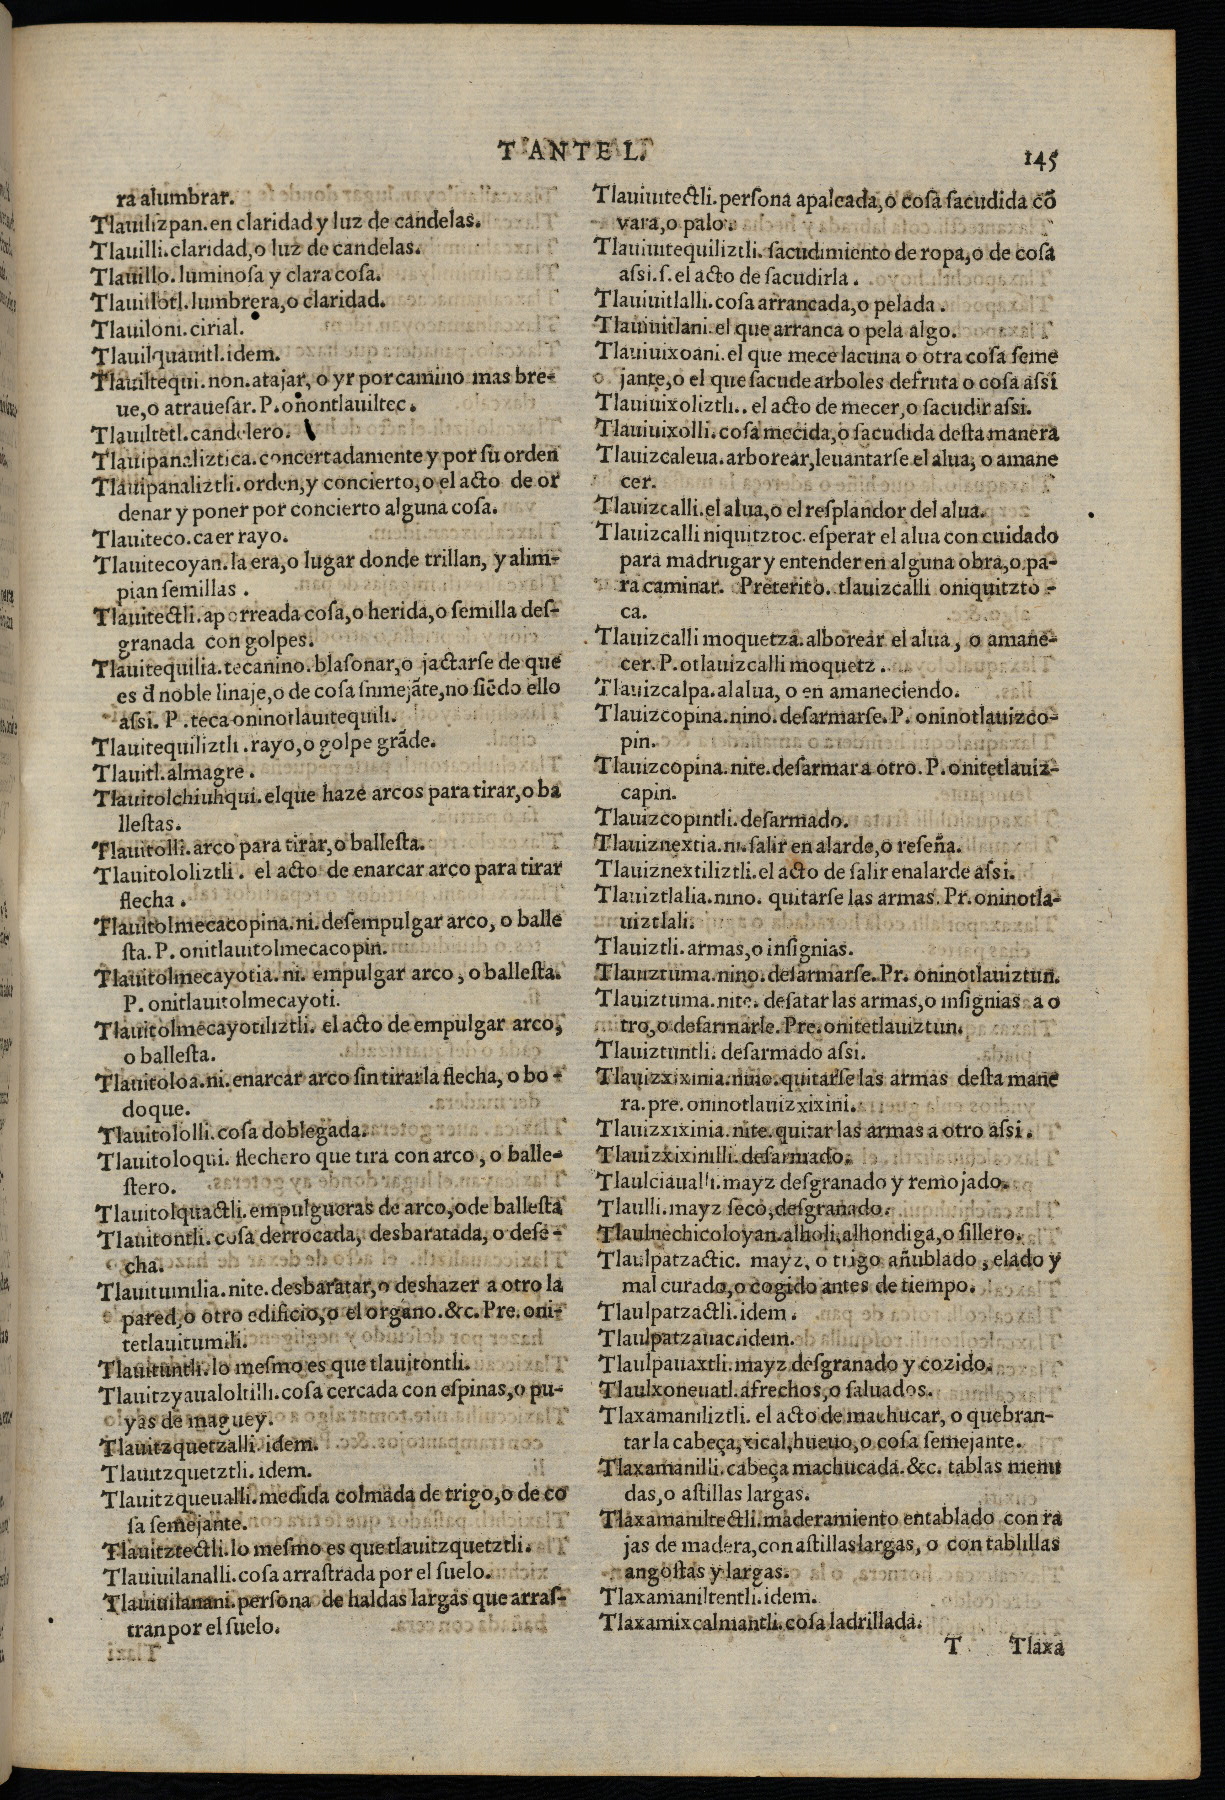 T ANTE L.
145
ra alumbrar.
Tlauilizpan. en claridad y luz de candelas.
Tlauilli. claridad, o luz de candelas.
Tlauillo. luminoſa y clara coſa.
Tlauillotl. lumbrera, o claridad.
Tlauiloni. cirial.
Tlauilquauitl. idem.
Tlauiltequi. non. atajar, o yr por camino mas bre-
ue, o atraueſar. P. onontlauiltec.
Tlauiltetl. candelero.
Tlauipanaliztica. concertadamente y por ſu orden
Tlauipanaliztli. orden, y concierto, o el acto de or
denar y poner por concierto alguna coſa.
Tlauiteco. caer rayo.
Tlauitecoyan. la era, o lugar donde trillan, y alim-
pian ſemillas.
Tlauitectli. aporreada coſa, o herida, o ſemilla deſ-
granada con golpes.
Tlauitequilia. tecanino. blaſonar, o jactarſe de que
es đ noble linaje, o de coſa ſnmejãte, no ſiẽdo ello
aſsi. P. teca oninotlauitequili.
Tlauitequiliztli. rayo, o golpe grãde.
Tlauitl. almagre.
Tlauitolchiuhqui. elque haze arcos para tirar, o ba
lleſtas.
Tlauitolli. arco para tirar, o balleſta.
Tlauitololiztli. el acto de enarcar arco para tirar
flecha.
Tlauitolmecacopina. ni. deſempulgar arco, o balle
ſta. P. onitlauitolmecacopin.
Tlauitolmecayotia. ni. empulgar arco, o balleſta.
P. onitlauitolmecayoti.
Tlauitolmecayotiliztli. el acto de empulgar arco,
o balleſta.
Tlauitoloa. ni. enarcar arco ſin tirar la flecha, o bo-
doque.
Tlauitololli. coſa doblegada.
Tlauitoloqui. flechero que tira con arco, o balle-
ſtero.
Tlauitolquactli. empulgueras de arco, o de balleſta
Tlauitontli. coſa derrocada, desbaratada, o deſe-
cha.
Tlauitumilia. nite. desbaratar, o deshazer a otro la
pared, o otro edificio, o el organo. &c. Pre. oni-
tetlauitumili.
Tlauituntli. lo meſmo es que tlauitontli.
Tlauitzyaualoltilli. coſa cercada con eſpinas, o pu-
yas de maguey.
Tlauitzquetzalli. idem.
Tlauitzquetztli. idem.
Tlauitzqueualli. medida colmada de trigo, o de co
ſa ſemejante.
Tlauitztectli. lo meſmo es que tlauitzquetztli.
Tlauiuilanalli. coſa arraſtrada por el ſuelo.
Tlauiuilanani. perſona de haldas largas que arraſ-
tran por el ſuelo.
Tlauiuitectli. perſona apaleada, o coſa ſacudida cõ
vara, o palo.
Tlauiuitequiliztli. ſacudimiento de ropa, o de coſa
aſsi. ſ. el acto de ſacudirla.
Tlauiuitlalli. coſa arrancada, o pelada.
Tlauiuitlani. el que arranca o pela algo.
Tlauiuixoani. el que mece lacuna o otra coſa ſeme
jante, o el que ſacude arboles defruta o coſa aſsi
Tlauiuixoliztli.. el acto de mecer, o ſacudir aſsi.
Tlauiuixolli. coſa mecida, o ſacudida deſta manera
Tlauizcaleua. arborear, leuantarſe el alua, o amane
cer.
Tlauizcalli. el alua, o el reſplandor del alua.
Tlauizcalli niquitztoc. eſperar el alua con cuidado
para madrugar y entender en alguna obra, o pa-
ra caminar. Preterito. tlauizcalli oniquitzto-
ca.
Tlauizcalli moquetza. alborear el alua, o amane-
cer. P. otlauizcalli moquetz.
Tlauizcalpa. al alua, o en amaneciendo.
Tlauizcopina. nino. deſarmarſe. P. oninotlauizco-
pin.
Tlauizcopina. nite. deſarmar a otro. P. onitetlauiz-
capin.
Tlauizcopintli. deſarmado.
Tlauiznextia. ni. ſalir en alarde, o reſeña.
Tlauiznextiliztli. el acto de ſalir enalarde aſsi.
Tlauiztlalia. nino. quitarſe las armas. Pr. oninotla-
uiztlali.
Tlauiztli. armas, o inſignias.
Tlauiztuma. nino. deſarmarſe. Pr. oninotlauiztun.
Tlauiztuma. nite. deſatar las armas, o inſignias a o
tro, o deſarmarle. Pre. onitetlauiztun.
Tlauiztuntli. deſarmado aſsi.
Tlauizxixinia. nino. quitarſe las armas deſta mane
ra. pre. oninotlauizxixini.
Tlauizxixinia. nite. quitar las armas a otro aſsi.
Tlauizxixinilli. deſarmado.
Tlaulciaualli. mayz deſgranado y remojado.
Tlaulli. mayz ſeco, deſgranado.
Tlaulnechicoloyan. alholi, alhondiga, o ſillero.
Tlaulpatzactic. mayz, o trigo añublado, elado y
mal curado, o cogido antes de tiempo.
Tlaulpatzactli. idem.
Tlaulpatzauac. idem.
Tlaulpauaxtli. mayz deſgranado y cozido.
Tlaulxoneuatl. afrechos, o ſaluados.
Tlaxamaniliztli. el acto de machucar, o quebran-
tar la cabeça, xical, hueuo, o coſa ſemejante.
Tlaxamanilli. cabeça machucada. &c. tablas menu
das, o aſtillas largas.
Tlaxamaniltectli. maderamiento entablado con ra
jas de madera, con aſtillas largas, o con tablillas
angoſtas y largas.
Tlaxamaniltentli. idem.
Tlaxamixcalmantli. coſa ladrillada.
T Tlaxa